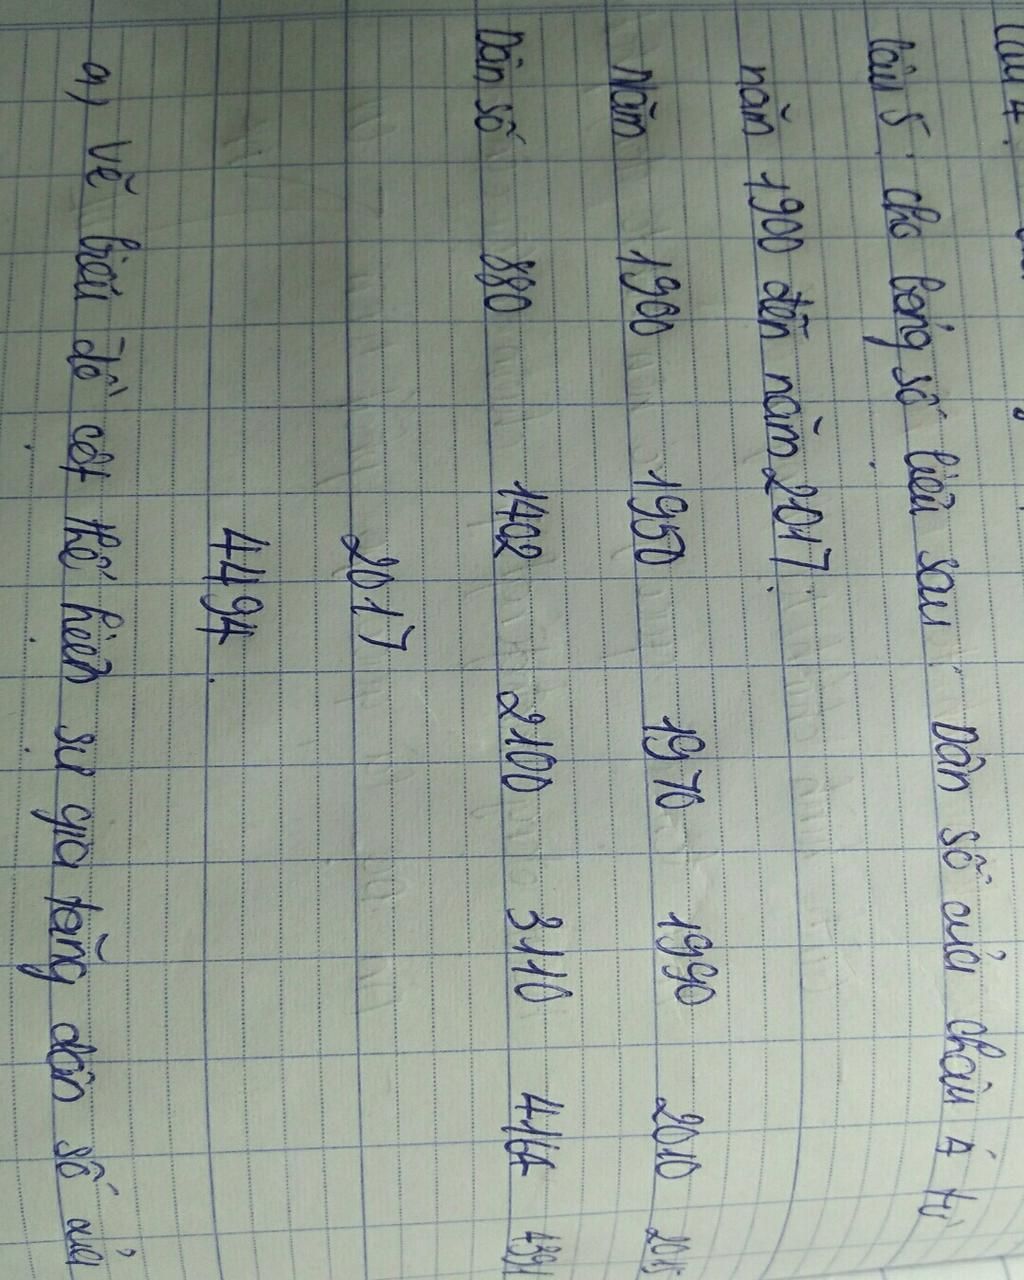 Câu 4.
Câu 5: cho bảng số liệu sau: Dân số của châu Á từ
năm 1900 đến năm 2017.
Năm 1900 1950 1970 1990 2010 2015
Dân số 880 1402 2100 3110 4164 4391
2017
4494.
a) Vẽ biểu đồ cột thể hiện sự gia tăng dân số của